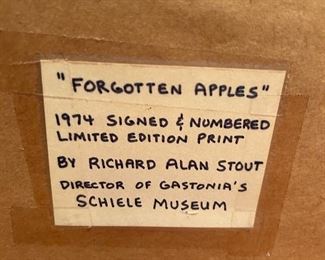 "FORGOTTEN APPLES"
1974 SIGNED & NUMBERED
LIMITED EDITION PRINT
BY RICHARD ALAN STOUT
DIRECTOR OF GASTONIA'S
SCHIELE MUSEUM